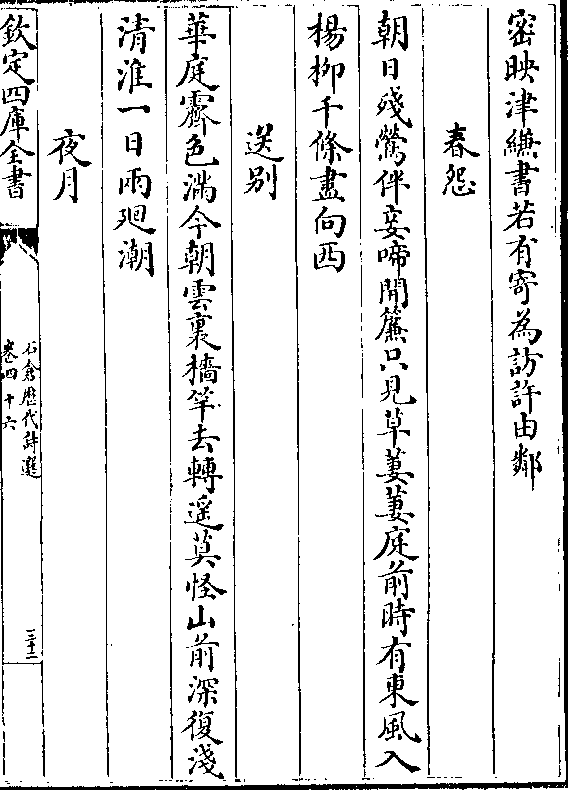 密映津縑書若有寄為訪許由鄰
春怨
朝日殘鶯伴妾啼開簾只見草萋萋庭前時有東風入
楊柳千條盡向西
送别
華庭霽色滿今朝雲裏檣竿去轉遥莫怪山前深復淺
清淮一日兩廻潮
夜月
欽定四庫全書
石倉歴代詩選
卷四十六
三十二